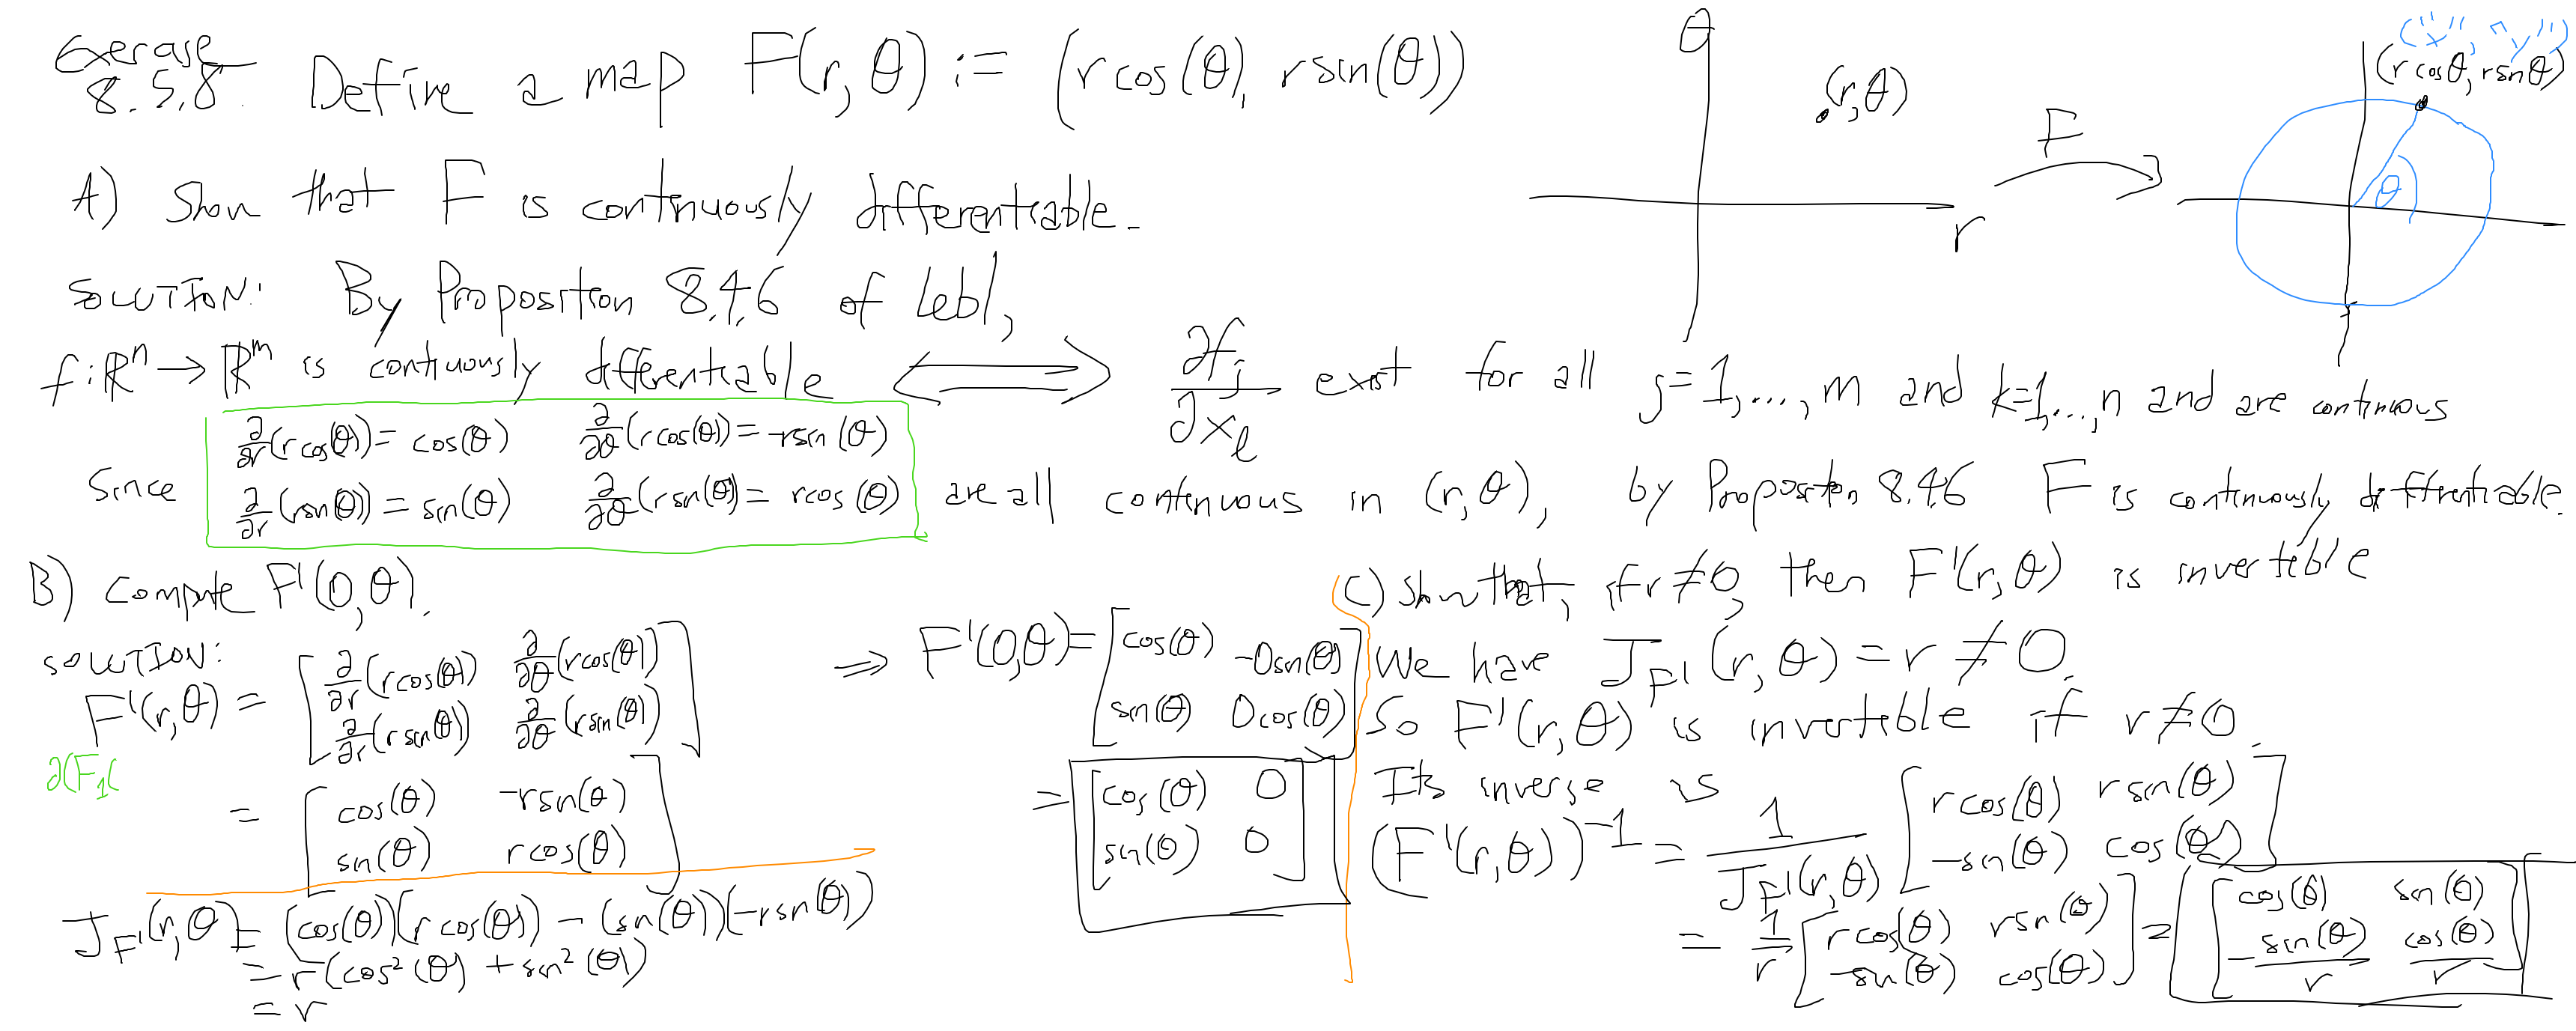 Exercise 8.5.8. Define a map F(r, θ) := (r cos(θ), r sin(θ))
θ
(r, θ)
r
F
("x", "y")
(r cosθ, r sinθ)
θ
A) Show that F is continuously differentiable.
SOLUTION: By Proposition 8.4.6 of Lebl,
f: ℝⁿ → ℝᵐ is contiuously differentiable ⟺ ∂f_j/∂x_l exist for all j=1,...,m and k=1,...,n and are continuous
Since ∂/∂r (r cos(θ)) = cos(θ) ∂/∂θ (r cos(θ)) = -r sin(θ)
∂/∂r (r sin(θ)) = sin(θ) ∂/∂θ (r sin(θ)) = r cos(θ) are all continuous in (r, θ), by Proposition 8.4.6 F is continuously differentiable.
B) Compute F'(0, θ).
SOLUTION:
F'(r, θ) = [∂/∂r (r cos(θ)) ∂/∂θ (r cos(θ))
∂/∂r (r sin(θ)) ∂/∂θ (r sin(θ))]
∂(F₁(
= [cos(θ) -r sin(θ)
sin(θ) r cos(θ)]
J_F'(r, θ) = (cos(θ))(r cos(θ)) - (sin(θ))(-r sin(θ))
= r (cos²(θ) + sin²(θ))
= r
⇒ F'(0, θ) = [cos(θ) -0 sin(θ)
sin(θ) 0 cos(θ)]
= [cos(θ) 0
sin(θ) 0]
C) Show that, if r ≠ 0, then F'(r, θ) is invertible
We have J_F'(r, θ) = r ≠ 0.
So F'(r, θ) is invertible if r ≠ 0.
Its inverse is
(F'(r, θ))⁻¹ = 1/J_F'(r, θ) [r cos(θ) r sin(θ)
-sin(θ) cos(θ)]
= 1/r [r cos(θ) r sin(θ)
-sin(θ) cos(θ)] = [cos(θ) sin(θ)
-sin(θ)/r cos(θ)/r]